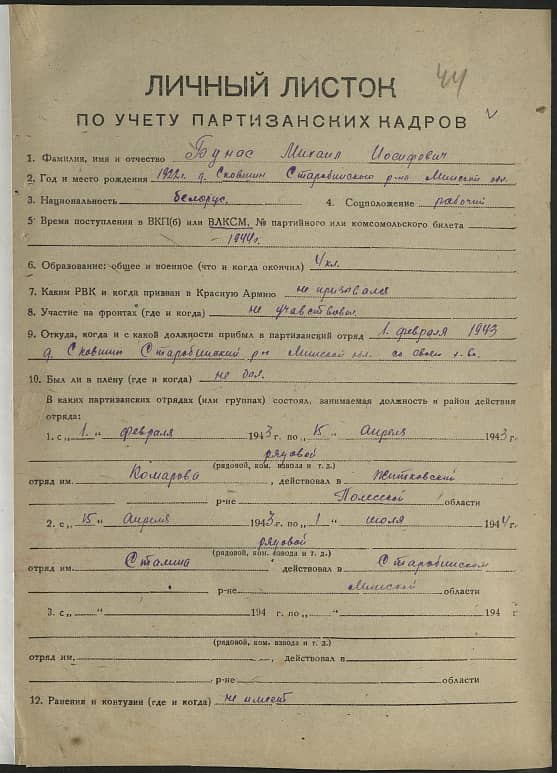 44
ЛИЧНЫЙ ЛИСТОК
ПО УЧЕТУ ПАРТИЗАНСКИХ КАДРОВ
1. Фамилия, имя и отчество Бунас Михаил Иосифович
2. Год и место рождения 1922г. д. Сковшин Старобинского р-на Минской обл.
3. Национальность белорус. 4. Соцположение рабочий
5 Время поступления в ВКП(б) или ВЛКСМ, № партийного или комсомольского билета
1944г.
6. Образование: общее и военное (что и когда окончил) 4 кл.
7. Каким РВК и когда призван в Красную Армию не призывался
8. Участие на фронтах (где и когда) не участвовал.
9. Откуда, когда и с какой должности прибыл в партизанский отряд 1. февраля 1943
д. Сковшин Старобинский р-н Минской обл. со своей
10. Был ли в плену (где и когда) не был.
В каких партизанских отрядах (или группах) состоял, занимаемая должность и район действия
отряда:
1. с „1.“ февраля 1943 г. по „15“ Апреля 1943 г.
рядовой
(рядовой, ком. взвода и т. д.)
отряд им. Комарова, действовал в Житковский
р-не Полесской области
2. с „15“ Апреля 1943 г. по „1“ июля 1944 г.
рядовой
(рядовой, ком. взвода и т. д.)
отряд им. Сталина действовал в Старобинском
р-не Минской области
3. с „ “ 194 г. по „ “ 194 г
(рядовой, ком. взвода и т. д.)
отряд им. , действовал в
р-не области
12. Ранения и контузии (где и когда) не имеет